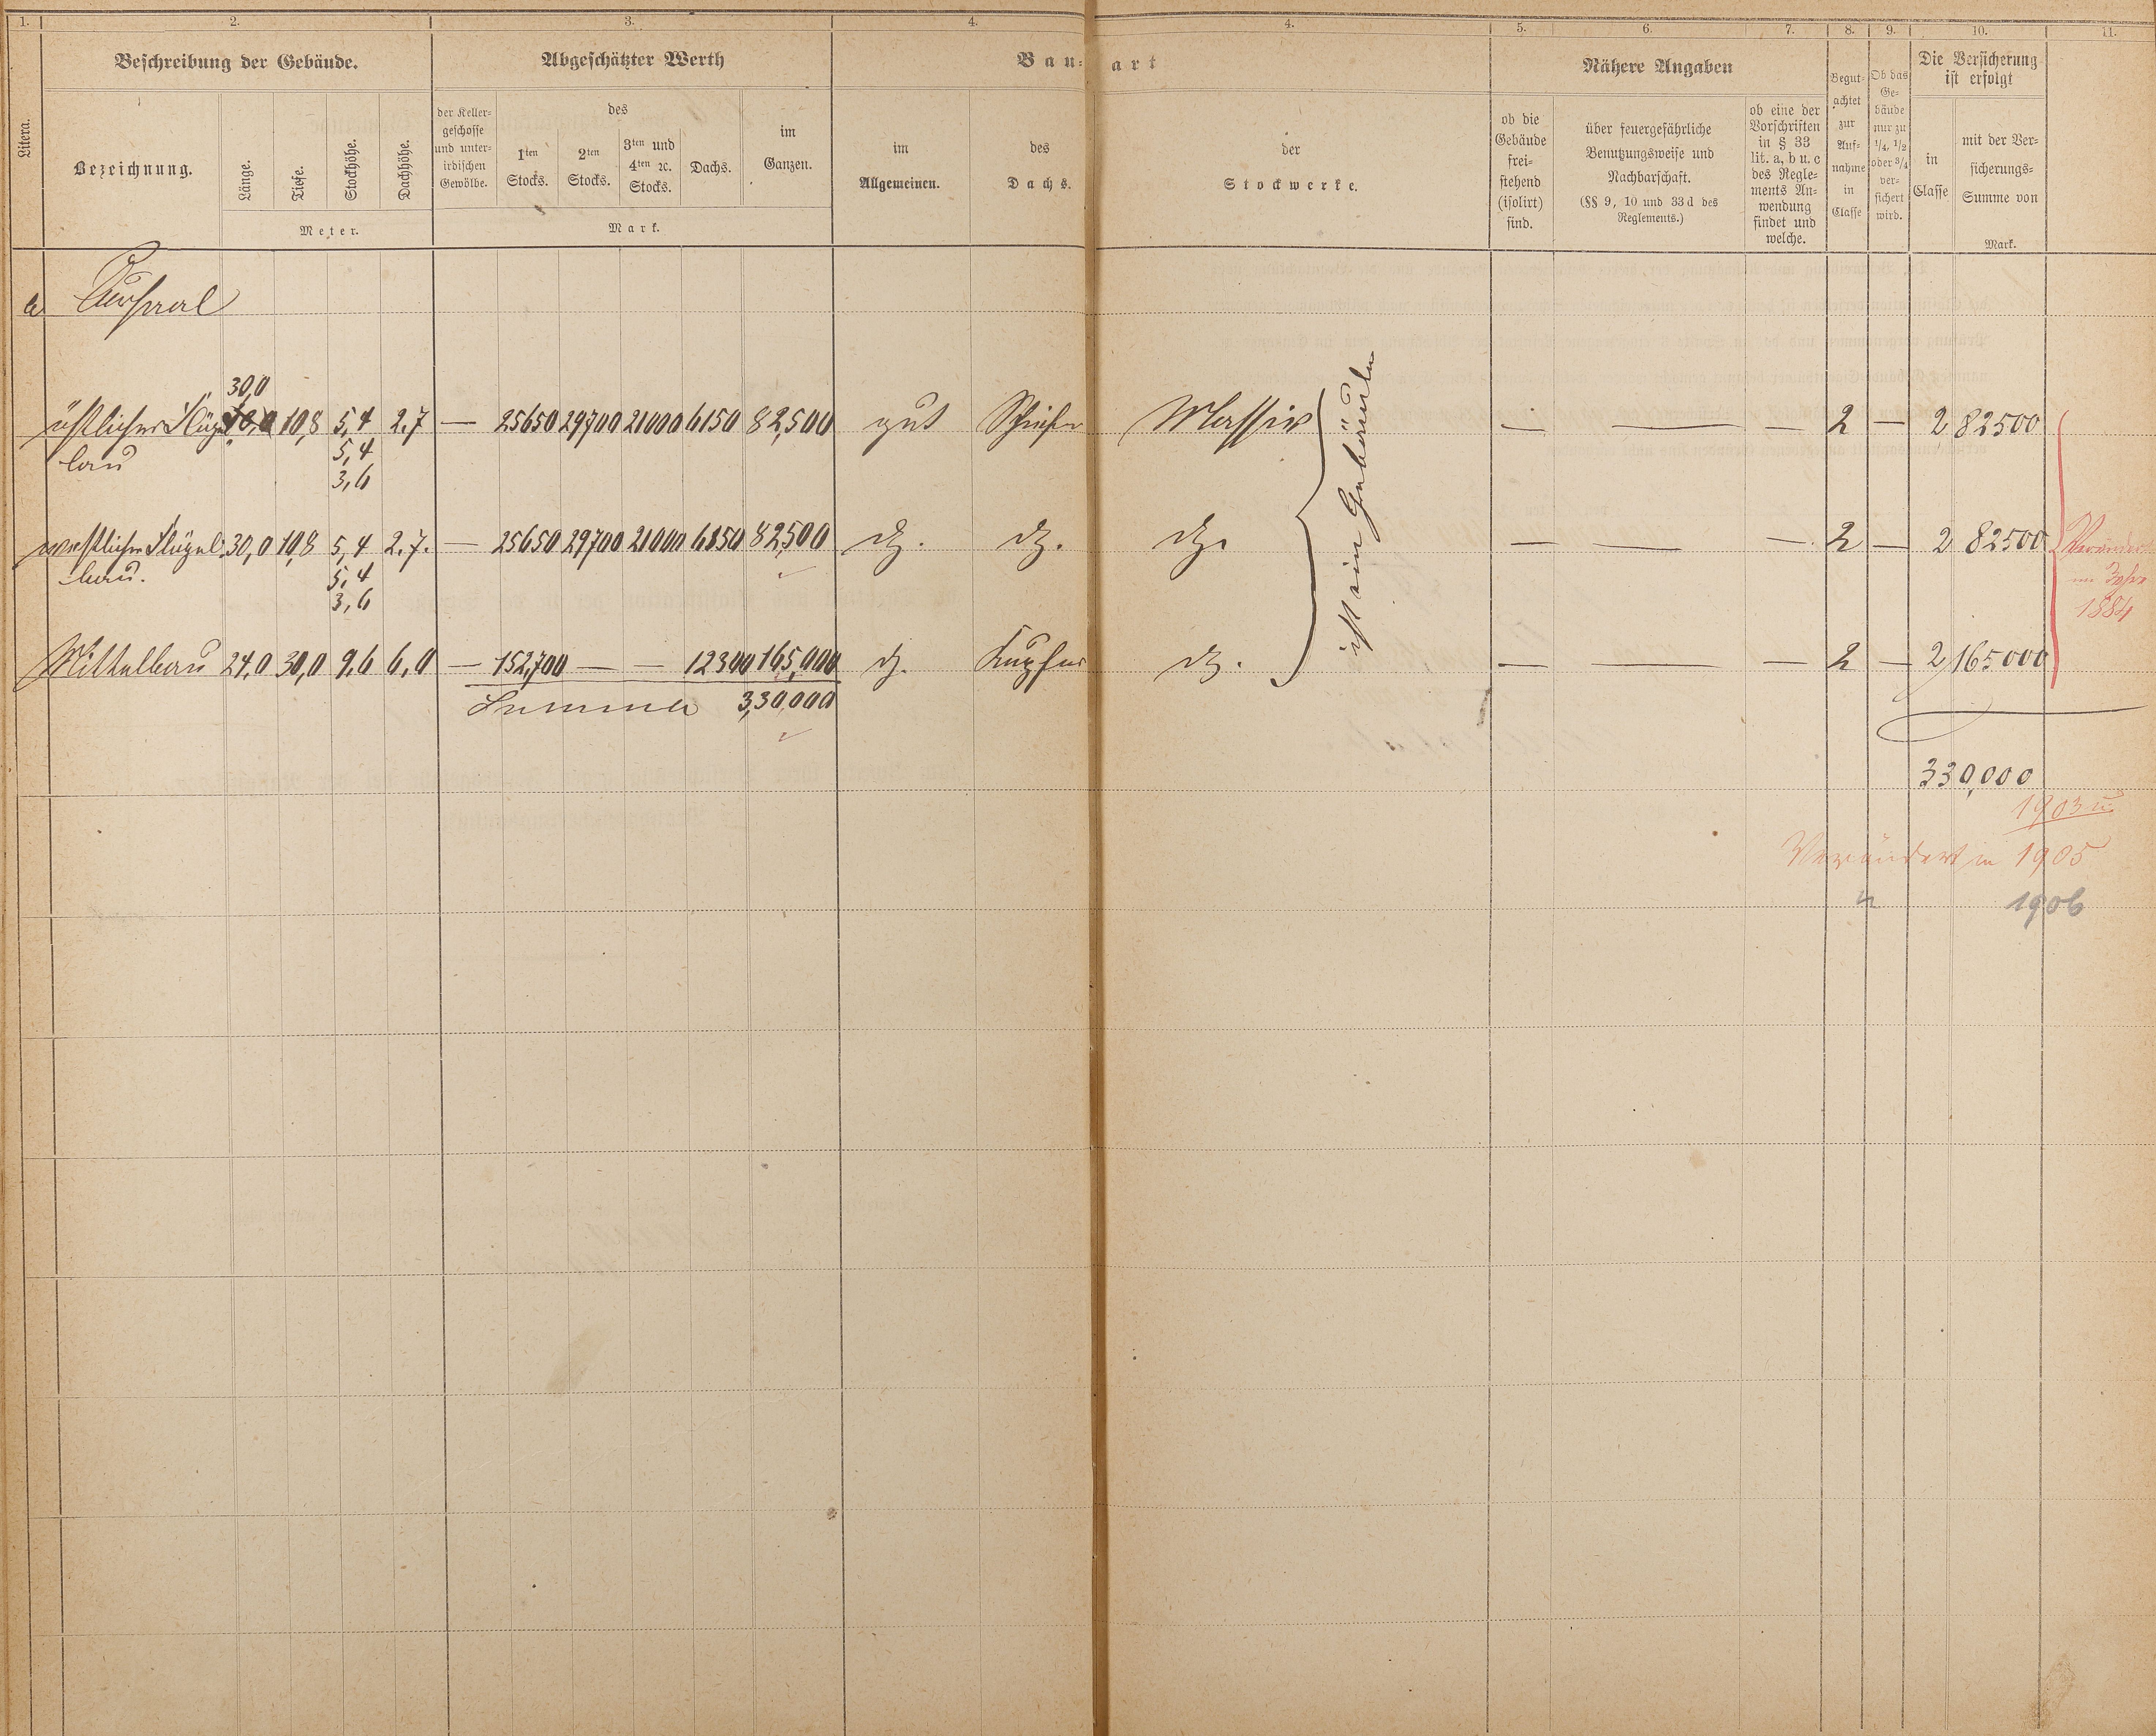 1. 2. 3. 4. 4. 5. 6. 7. 8. 9. 10. 11.
Litera.
Beschreibung der Gebäude.
Bezeichnung.
Länge.
Tiefe.
Stockhöhe.
Dachhöhe.
Meter.
Abgeschätzter Werth
der Keller-
geschosse
und unter-
irdischen
Gewölbe.
des
1ten
Stocks.
2ten
Stocks.
3ten und
4ten ꝛc.
Stocks.
Dachs.
im
Ganzen.
Mark.
Bau-art
im
Allgemeinen.
des
Dachs.
der
Stockwerke.
Nähere Angaben
ob die
Gebäude
frei-
stehend
(isolirt)
sind.
über feuergefährliche
Benutzungsweise und
Nachbarschaft.
(§§ 9, 10 und 33d des
Reglements.)
ob eine der
Vorschriften
in § 33
lit. a, b u. c
des Regle-
ments An-
wendung
findet und
welche.
Begut-
achtet
zur
Auf-
nahme
in
Classe
Ob das
Ge-
bäude
nur zu
1/4, 1/2
oder 3/4
ver-
sichert
wird.
Die Versicherung
ist erfolgt
in
Classe
mit der Ver-
sicherungs-
Summe von
Mark.
a Cursaal
30,0
östlicher Flügel 10,8 5,4 2.7 — 25650 29700 21000 6150 82,500 gut Schiefer Massiv — — — 2 — 2 82500
bau 5,4
3,6
westlicher Flügel 30,0 10,8 5,4 2.7. — 25650 29700 21000 6150 82,500 do. do. do. — — — 2 — 2 82500
bau. 5,4
3,6
Mittelbau 24,0 30,0 9,6 6,0 — 152,700 — — 12300 165,000 do. Kupfer do. — — — 2 — 2 165000
Summa 3,30,000
ist ein Gebäude
Verändert
im Jahre
1884
330,000
1903 u.
Verändert in 1905
" 1906